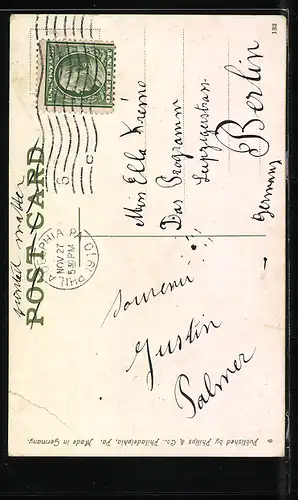 printed matter
POST CARD
PHILADELPHIA PA.
NOV 27
5 30 PM
1910
Miss Ella Kreme
Das Programm
Leipzigerstrass
Berlin
Germany
Souvenir!!!
Justin
Palmer
Published by Philips & Co. Philadelphia, Pa. Made in Germany.
132